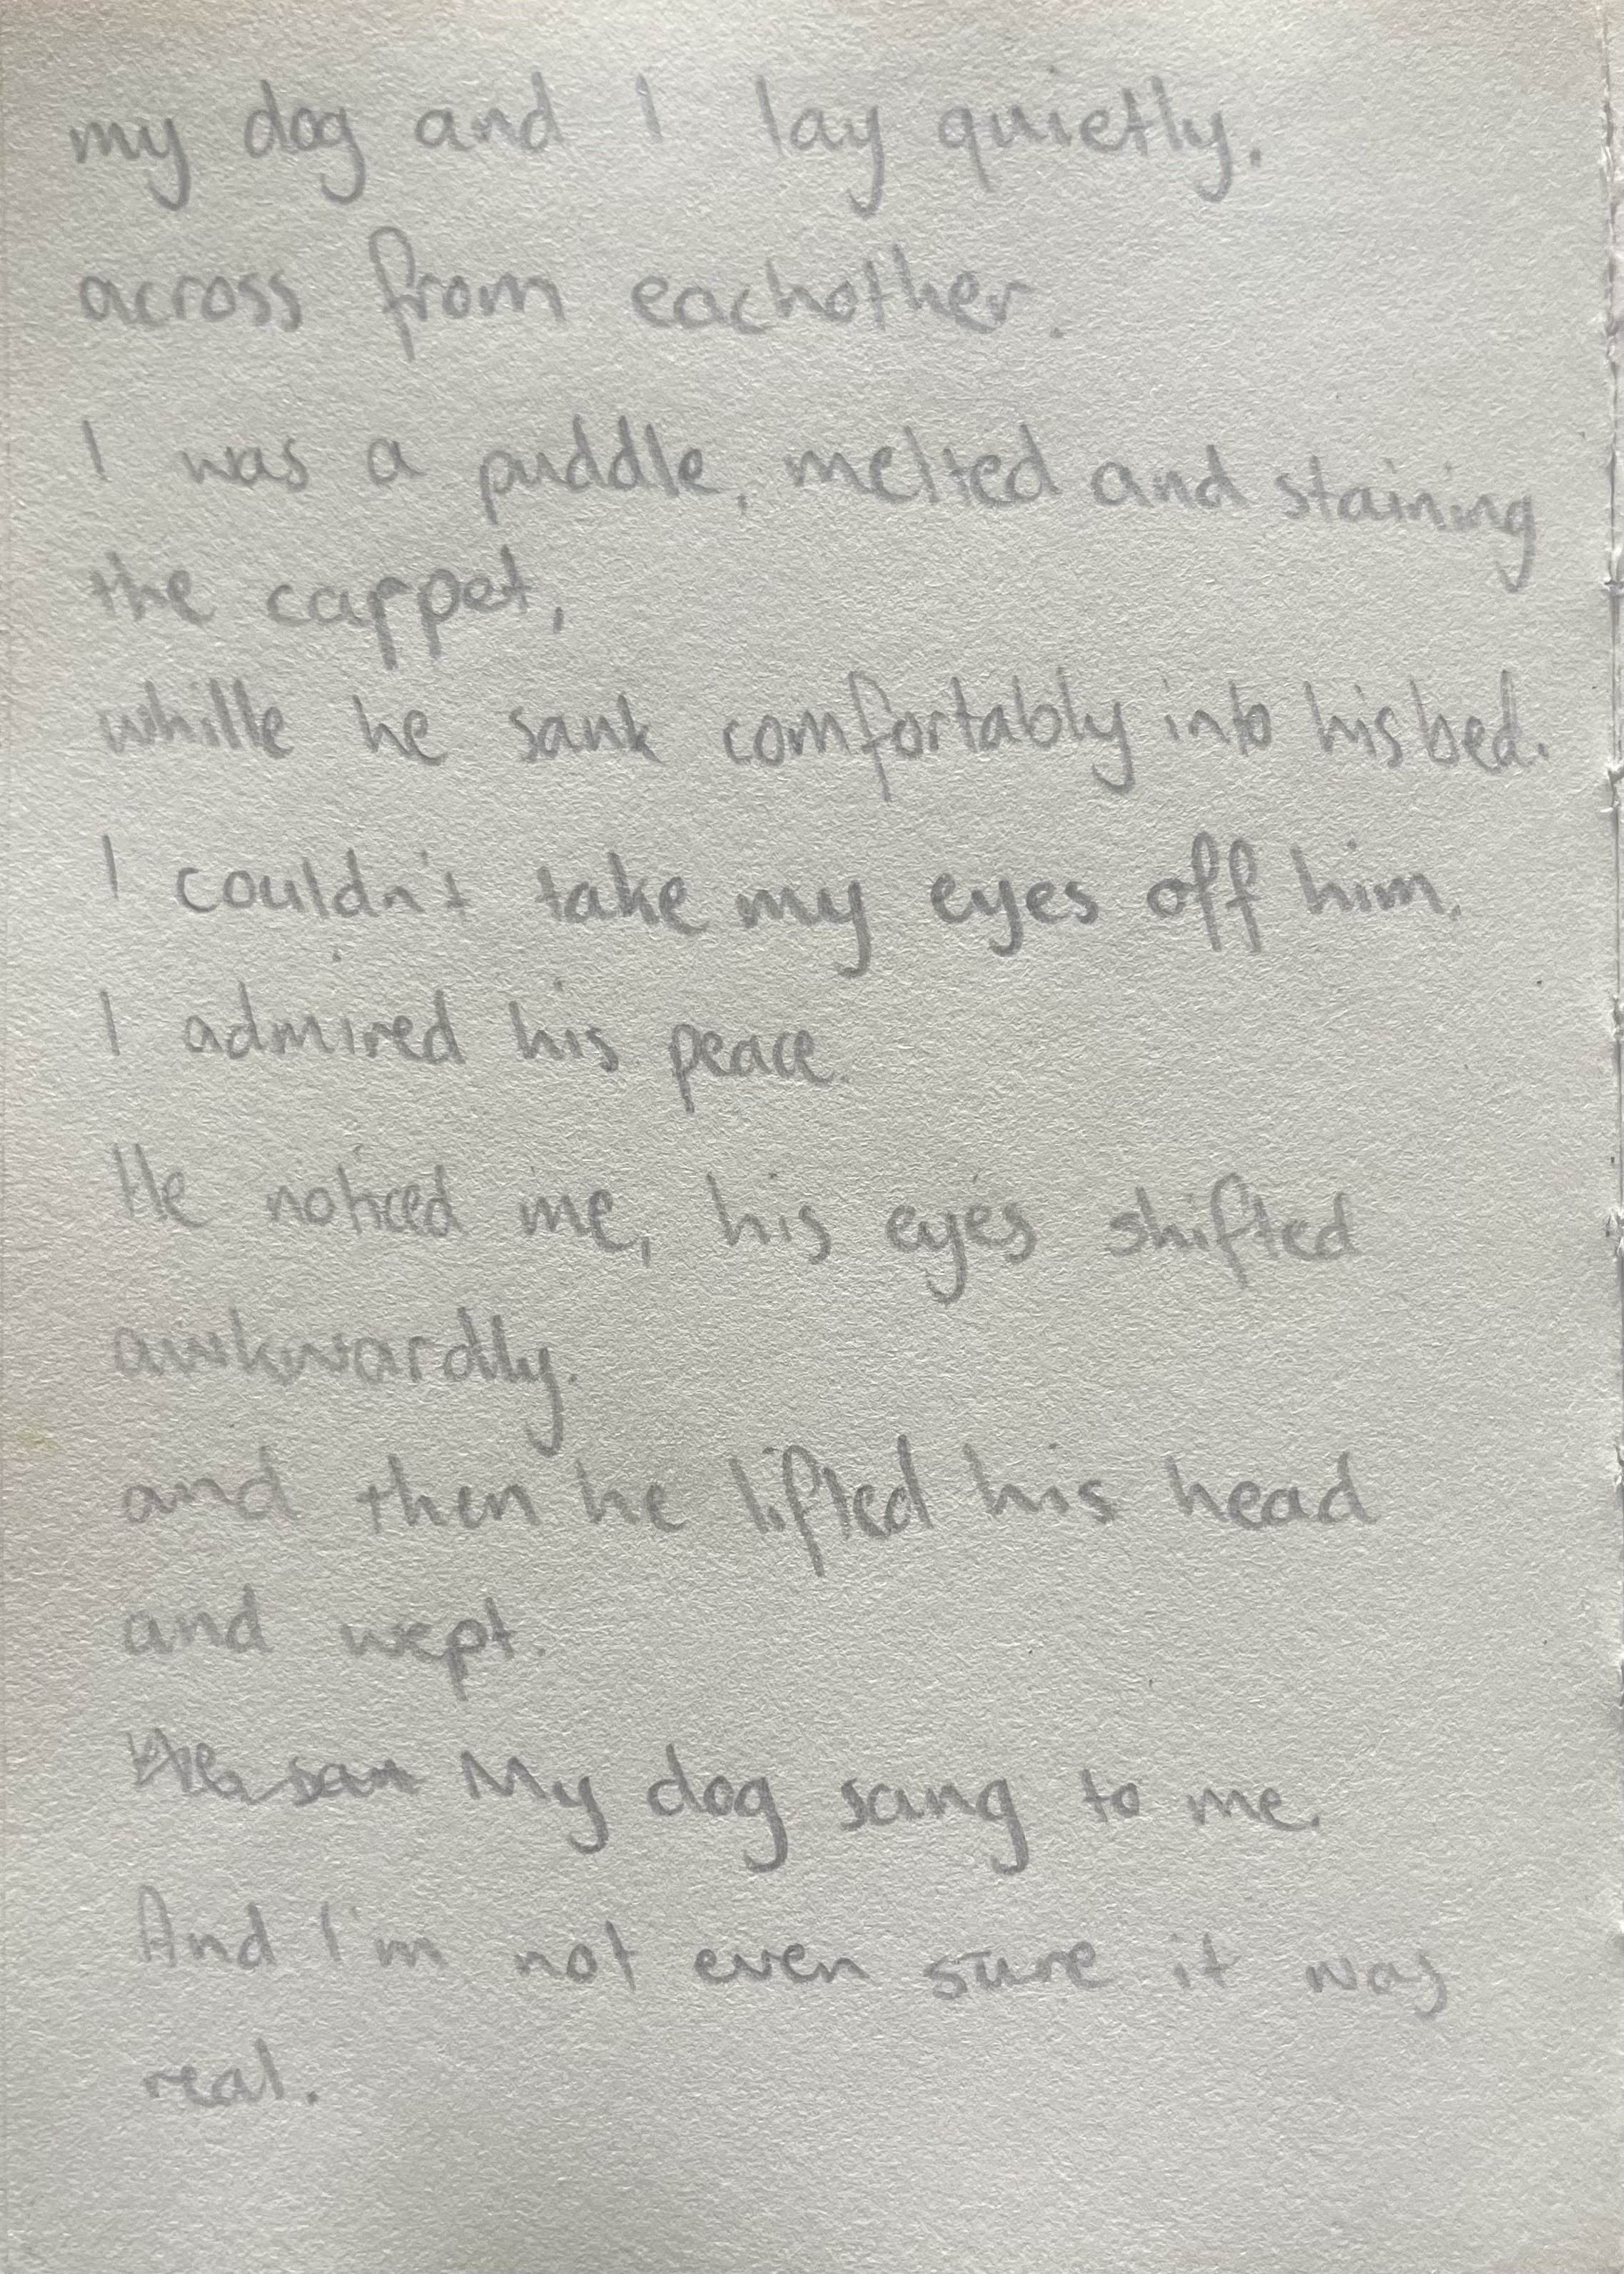 my dog and I lay quietly.
across from eachother.
I was a puddle, melted and staining
the carpet,
whille he sank comfortably into his bed.
I couldn't take my eyes off him.
I admired his peace.
He noticed me, his eyes shifted
awkwardly.
and then he lifted his head
and wept.
My dog sang to me.
And I'm not even sure it was
real.